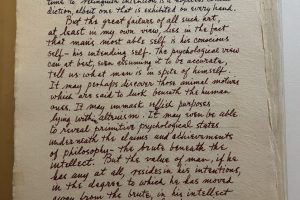 time to relinquish intention is a
diction, albeit one that is exhibited on every hand.
But the great failure of all such art,
at least in my own view, lies in the fact
that man's most able self is his conscious
self—his intending self. The psychological view
can at best, even assuming it to be accurate,
tell us what man is in spite of himself.
It may perhaps discover those animal motives
which are said to lurk beneath the human
ones. It may unmask selfish purposes
lying within altruism. It may even be able
to reveal primitive psychological states
underneath the claims and achievements
of philosophy—the brute beneath the
intellect. But the value of man, if he
has any at all, resides in his intentions,
in the degree to which he has moved
away from the brute, in his intellect